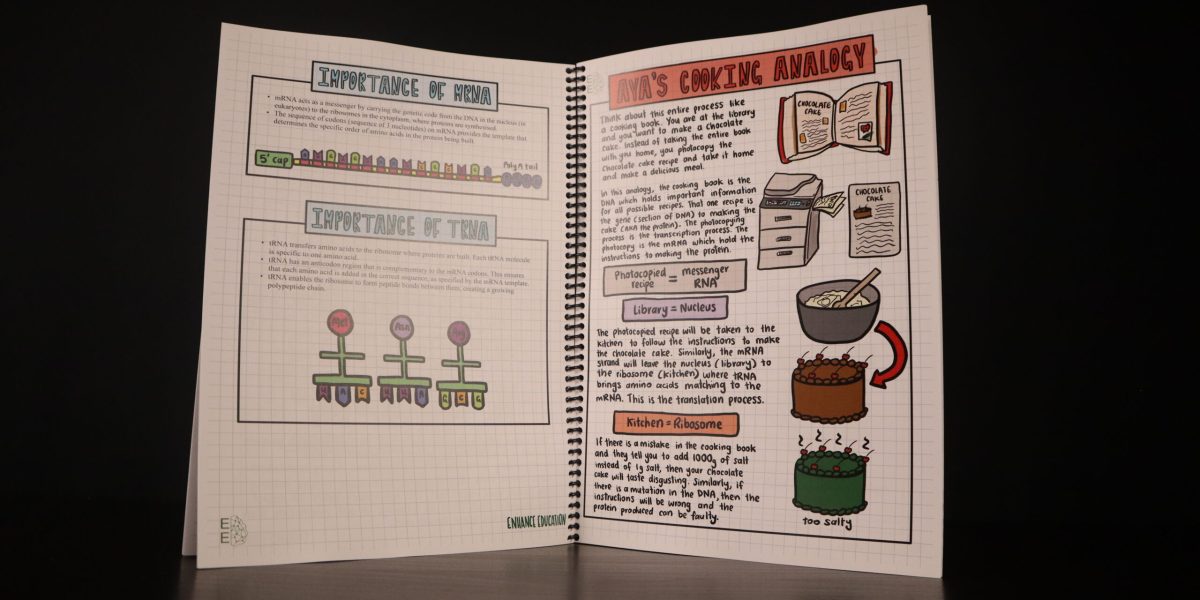 IMPORTANCE OF MRNA
• mRNA acts as a messenger by carrying the genetic code from the DNA in the nucleus (in
eukaryotes) to the ribosomes in the cytoplasm, where proteins are synthesised.
• The sequence of codons (sequence of 3 nucleotides) on mRNA provides the template that
determines the specific order of amino acids in the protein being built.
5' cap
Poly A tail
IMPORTANCE OF TRNA
• tRNA transfers amino acids to the ribosome where proteins are built. Each tRNA molecule
is specific to one amino acid.
• tRNA has an anticodon region that is complementary to the mRNA codons. This ensures
that each amino acid is added in the correct sequence, as specified by the mRNA template.
• tRNA enables the ribosome to form peptide bonds between them, creating a growing
polypeptide chain.
Met
Asn
Arg
E
E
ENHANCE EDUCATION
AYA'S COOKING ANALOGY
Think about this entire process like
a cooking book. You are at the library
and you want to make a chocolate
cake. Instead of taking the entire book
with you home, you photocopy the
chocolate cake recipe and take it home
and make a delicious meal.
CHOCOLATE
CAKE
In this analogy, the cooking book is the
DNA which holds important information
for all possible recipes. That one recipe is
the gene (section of DNA) to making the
cake (AKA the protein). The photocopying
process is the transcription process. The
photocopy is the mRNA which hold the
instructions to making the protein.
CHOCOLATE
CAKE
Photocopied recipe = messenger RNA
Library = Nucleus
The photocopied recipe will be taken to the
kitchen to follow the instructions to make
the chocolate cake. Similarly, the mRNA
strand will leave the nucleus (library) to
the ribosome (kitchen) where tRNA
brings amino acids matching to the
mRNA. This is the translation process.
Kitchen = Ribosome
If there is a mistake in the cooking book
and they tell you to add 1000g of salt
instead of 1g salt, then your chocolate
cake will taste disgusting. Similarly, if
there is a mutation in the DNA, then the
instructions will be wrong and the
protein produced can be faulty.
too salty